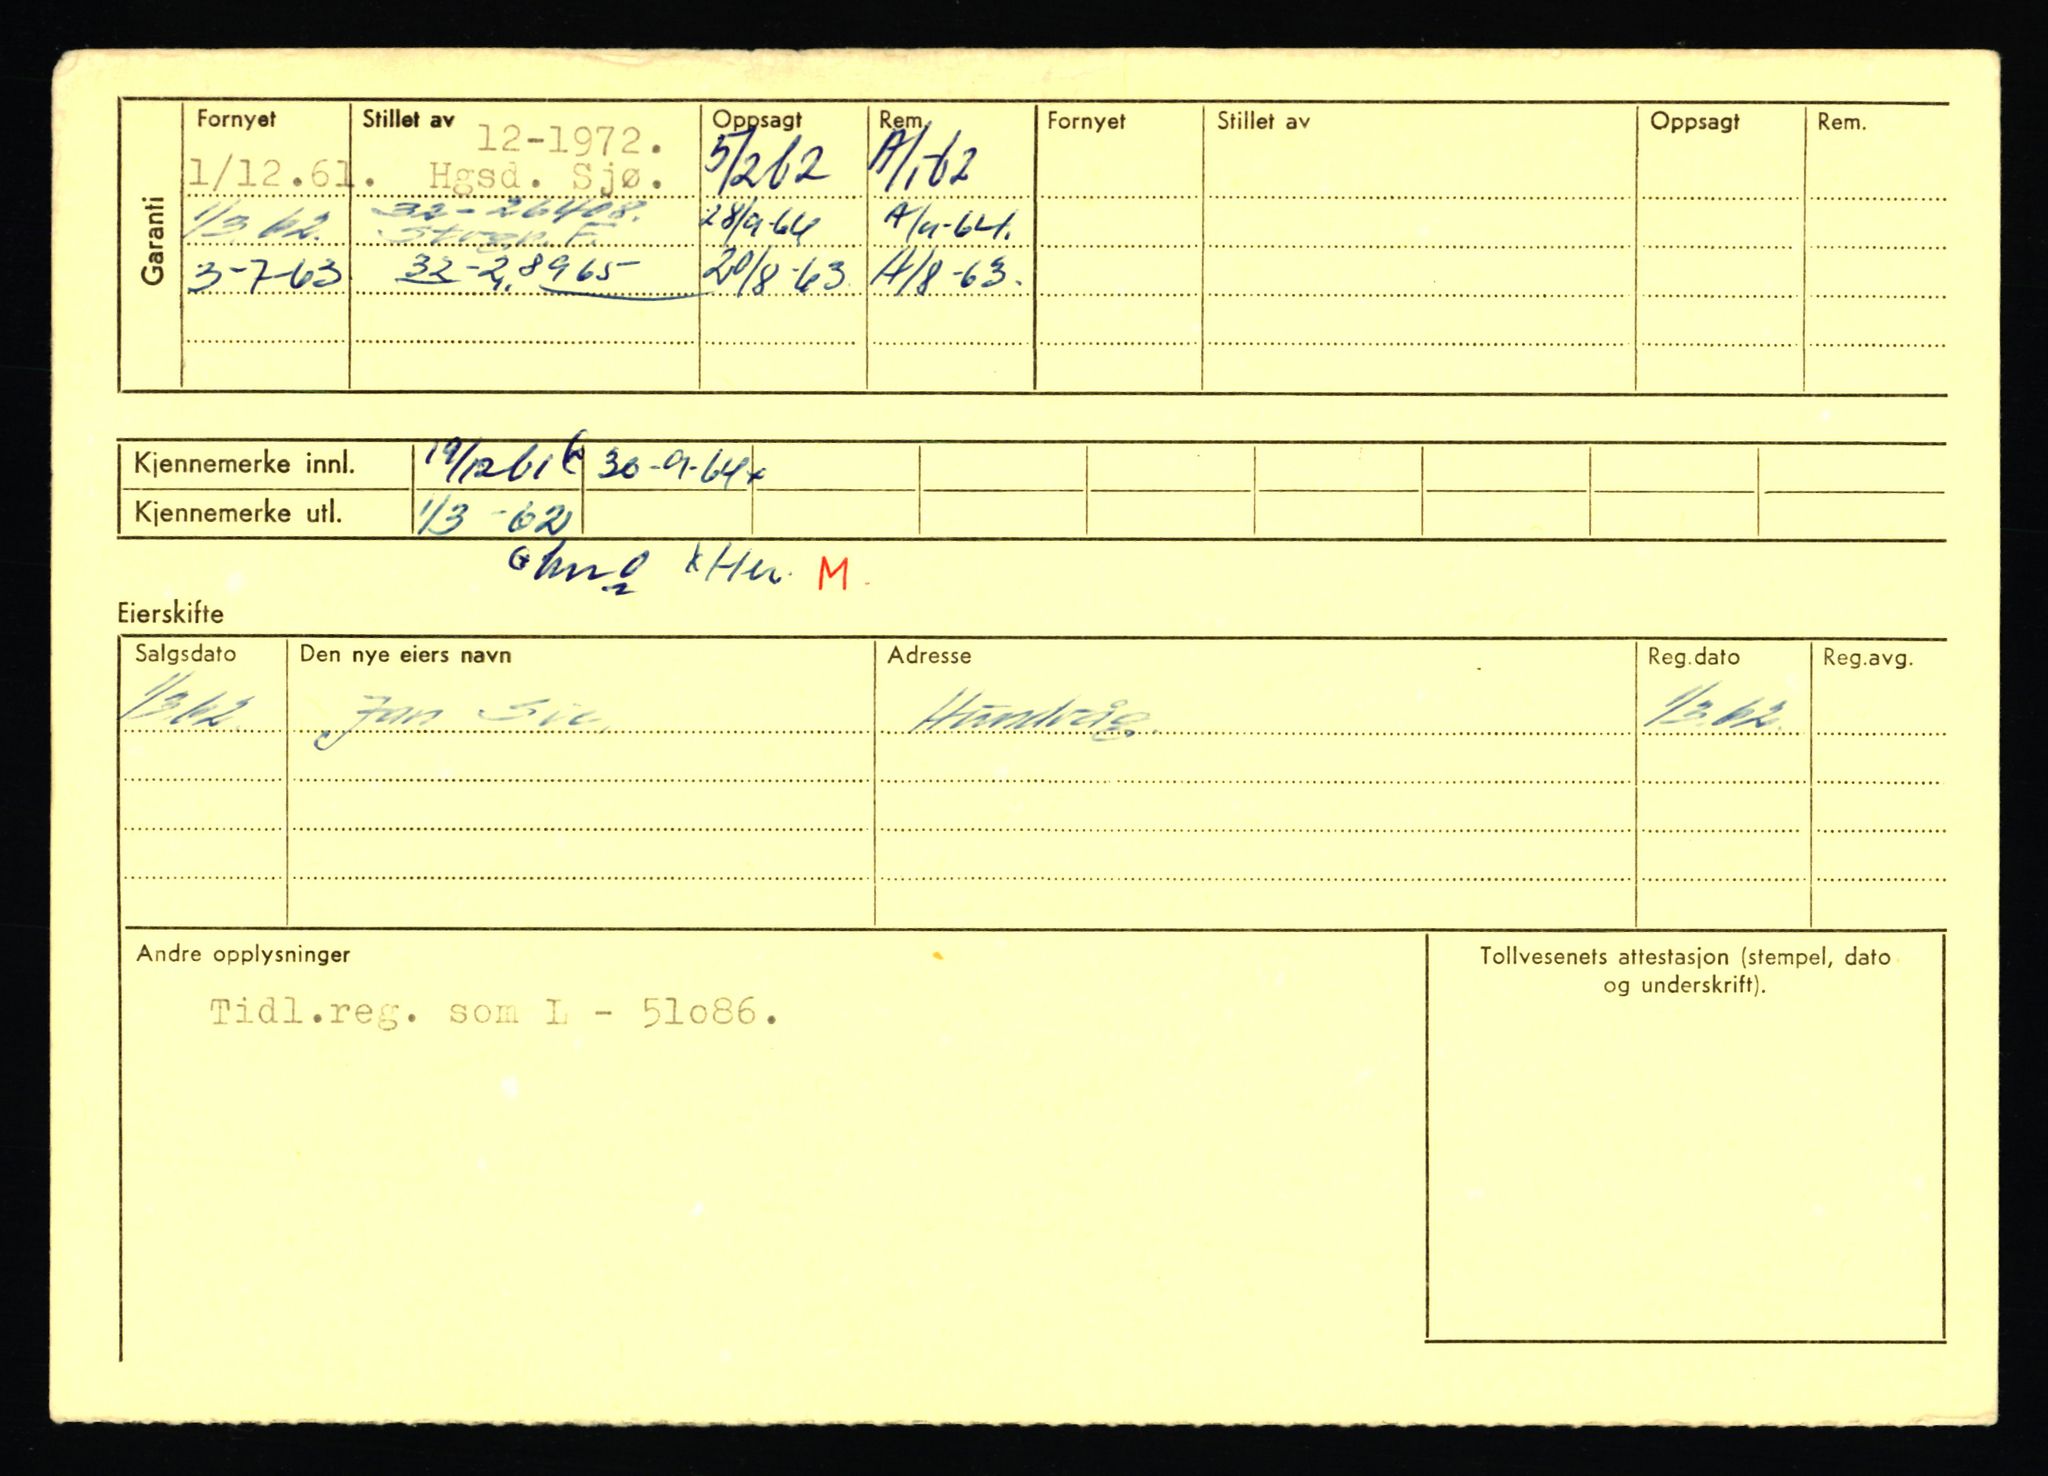 Garanti
Fornyet Stillet av Oppsagt Rem. Fornyet Stillet av Oppsagt Rem.
12-1972.
1/12.61. Hgsd. Sjø. 5/2 62 A/1-62
32-26408.
1/3.62. 28/9-64 A/9-64.
3-7-63 32-28965 20/8-63 A/8-63.
Kjennemerke innl. 19/12 61 30-9-64x
Kjennemerke utl. 1/3-62
x Her. M.
Eierskifte
Salgsdato Den nye eiers navn Adresse Reg.dato Reg.avg.
1/3.62. Jan Hundvåg. 1/3.62.
Andre opplysninger
Tollvesenets attestasjon (stempel, dato
og underskrift).
Tidl.reg. som L - 51o86.